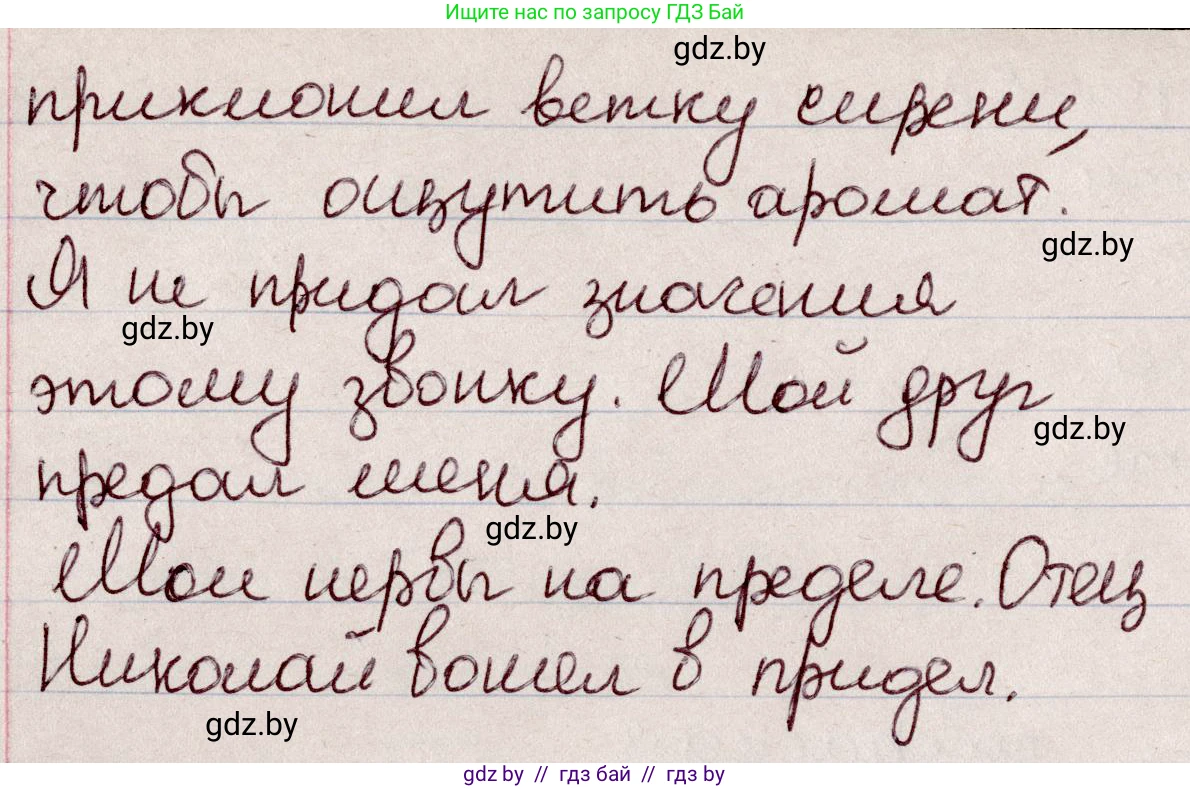 Ищите нас по запросу ГДЗ Бай
gdz.by
приклонил ветку сирени,
чтобы ощутить аромат.
gdz.by
Я не придал значения
gdz.by
этому звонку. Мой друг
gdz.by
предал меня.
gdz.by
Мои нервы на пределе. Отец
Николай вошел в придел.
gdz.by
gdz by // гдз бай // гдз by